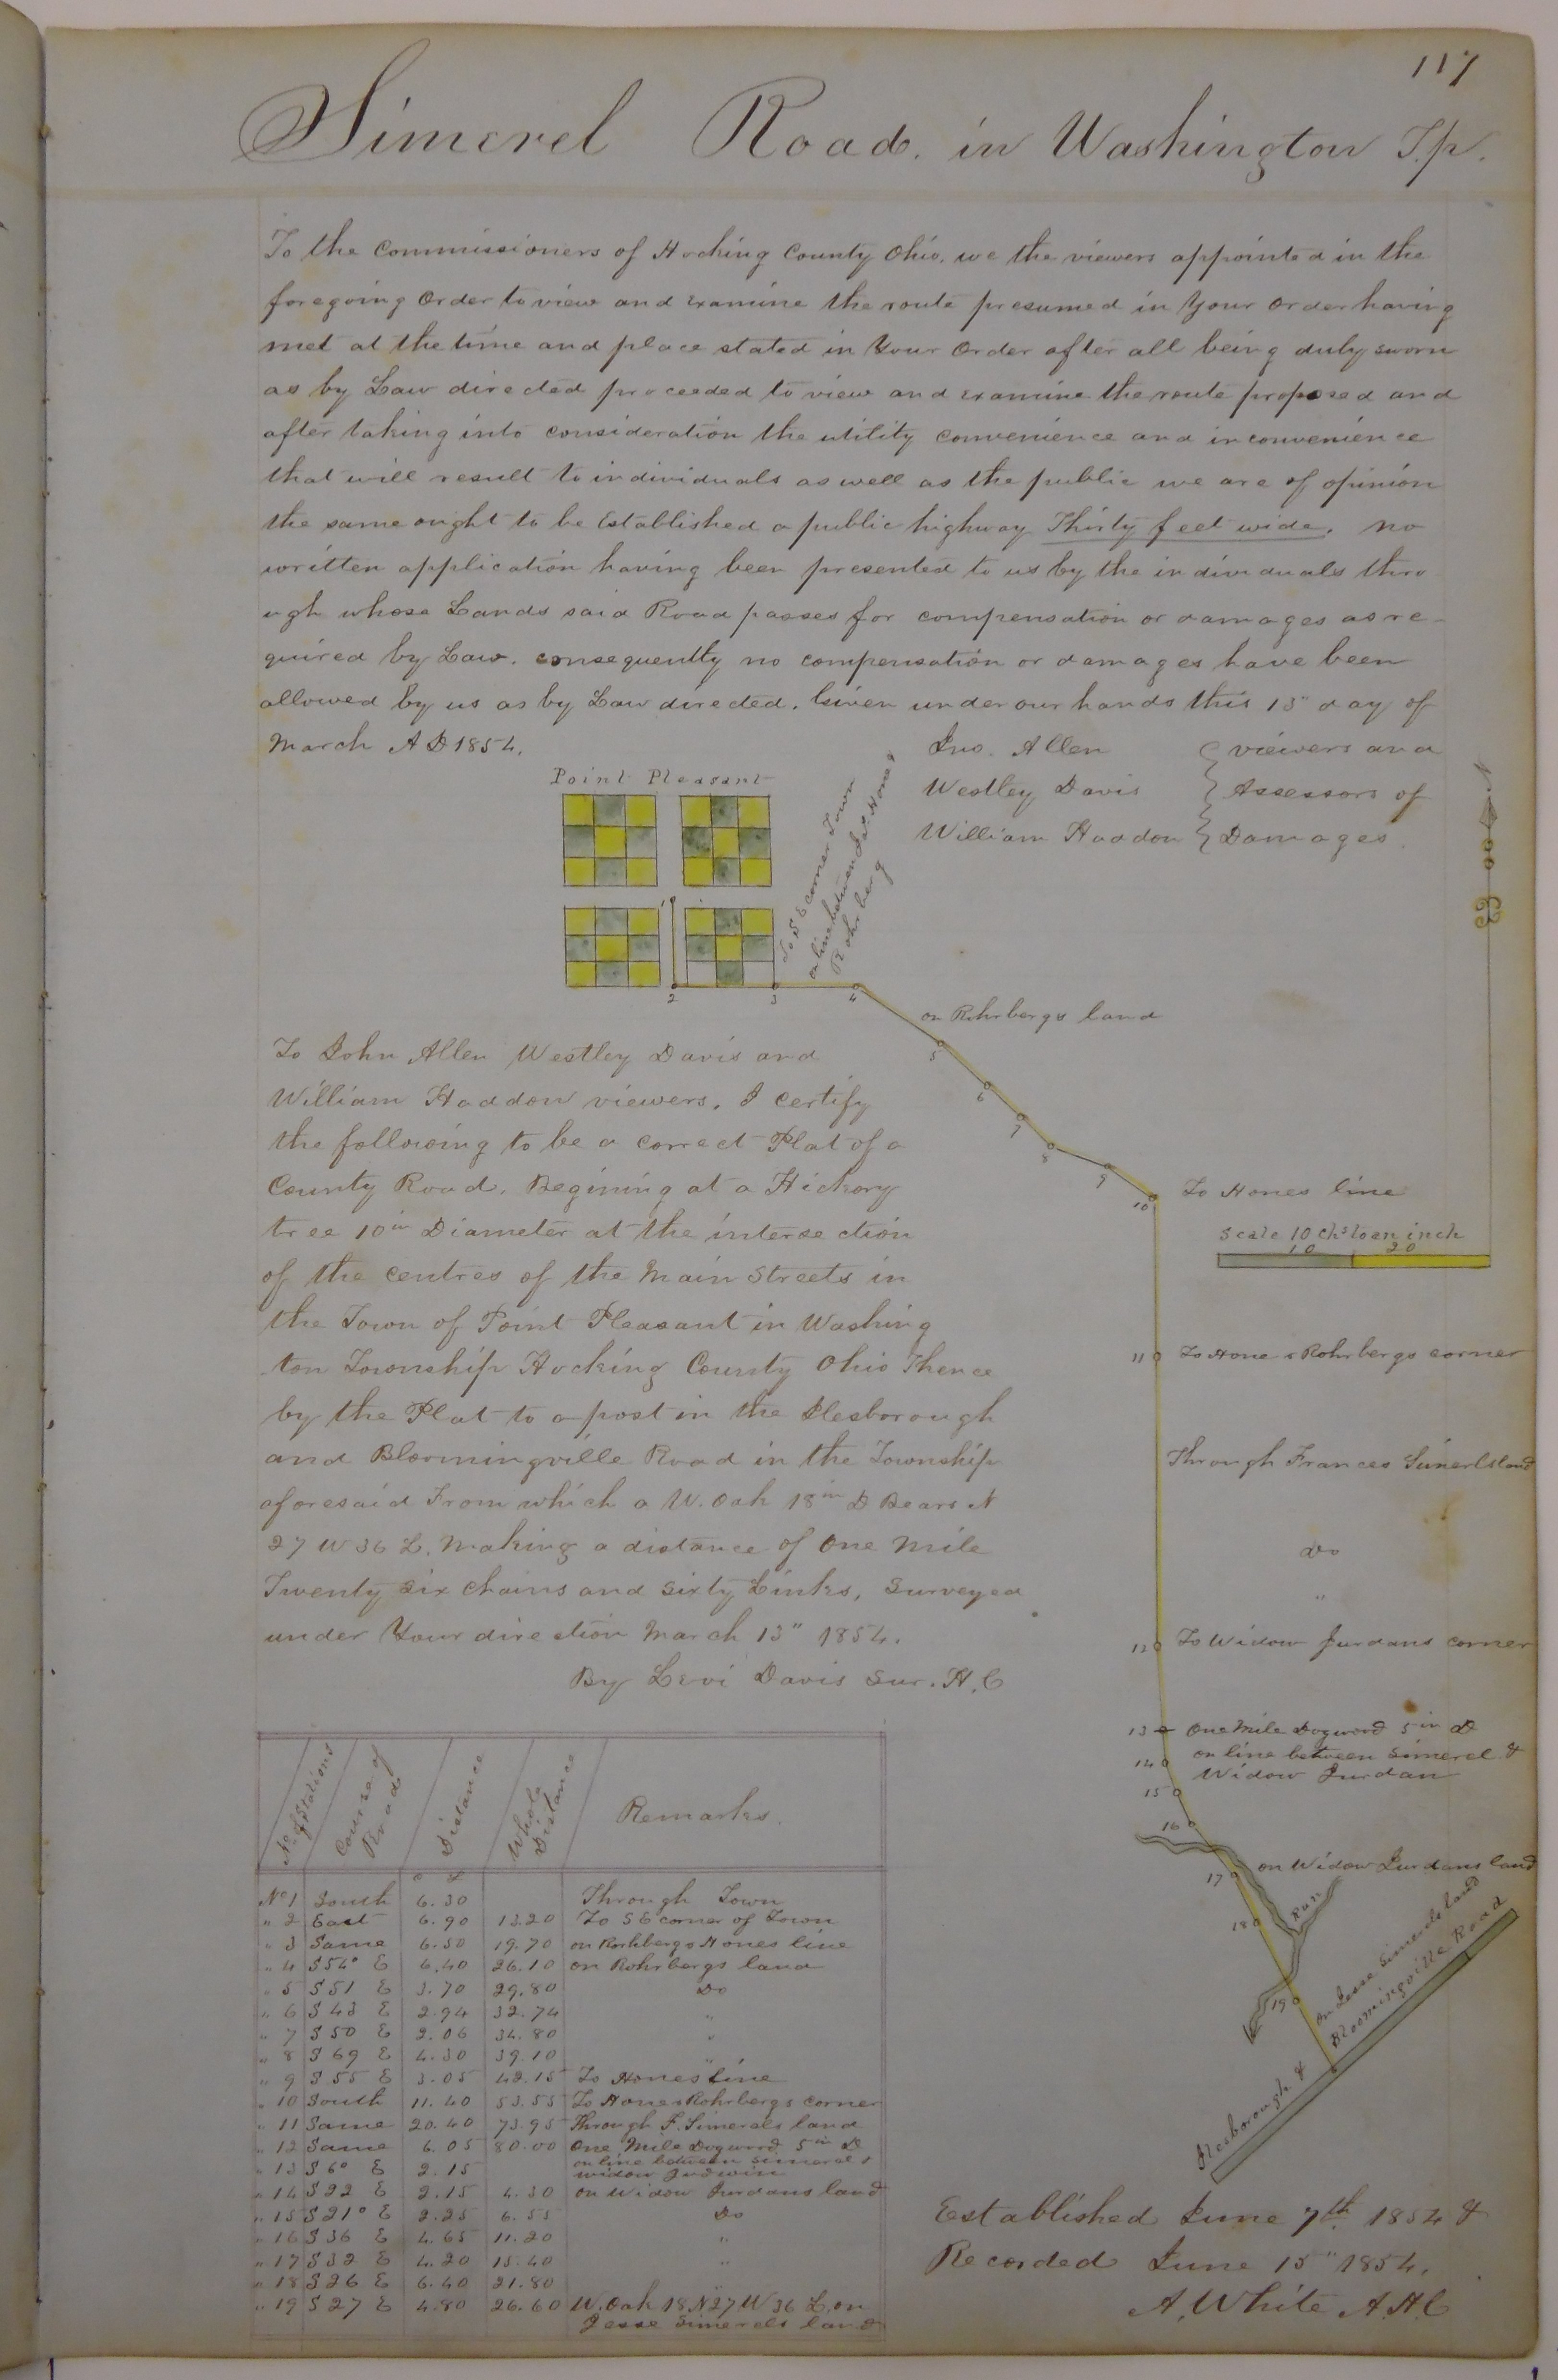 117
Simerel Road. in Washington T.p.
To the Commissioners of Hocking County Ohio. we the viewers appointed in the
foregoing Order to view and examine the route presumed in Your Order having
met at the time and place stated in Your Order after all being duly sworn
as by Law directed proceeded to view and examine the route proposed and
after taking into consideration the utility convenience and inconvenience
that will result to individuals as well as the public we are of opinion
the same ought to be Established a public highway Thirty feet wide. no
written application having been presented to us by the individuals thro
ugh whose Lands said Road passes for compensation or damages as re-
quired by Law. consequently no compensation or damages have been
allowed by us as by Law directed. Given under our hands this 13" day of
March A D 1854.
Jno. Allen
Westley Davis
William Haddon
viewers and
Assessors of
Damages.
Point Pleasant
To S E corner Town
on line between Hones
Rohrberg
2
3
4
on Rohrbergs land
5
6
7
8
9
10
To Hones line
Scale 10 chs to an inch
10 20
11 To Hone & Rohrbergs corner
Through Frances Simerls land
Do
"
12 To Widow Jurdans corner
13 One Mile Dogwood 5 in D
on line between Simerel &
Widow Jurdan
14
15
16
17
on Widow Jurdans land
18
Run
19
on Jesse Simerels land
Ilesborough & Bloomingville Road
To John Allen Westley Davis and
William Haddon viewers. I certify
the following to be a correct Plat of a
County Road. Begining at a Hickory
tree 10 in Diameter at the intersection
of the centres of the Main Streets in
the Town of Point Pleasant in Washing
ton Township Hocking County Ohio Thence
by the Plat to a post in the Ilesborough
and Bloomingville Road in the Township
aforesaid From which a W. Oak 18 in D Bears N
27 W 36 L. Making a distance of One Mile
Twenty six chains and sixty Links, Surveyed
under Your direction March 13" 1854.
By Levi Davis Sur. H. C
No of Stations Course of Road Distance Whole Distance Remarks.
C L
No 1 South 6.30 Through Town
" 2 East 6.90 13.20 To S E corner of Town
" 3 Same 6.50 19.70 on Rorhbergs Hones line
" 4 S 54° E 6.40 26.10 on Rohrbergs land
" 5 S 51 E 3.70 29.80 Do
" 6 S 43 E 2.94 32.74 "
" 7 S 50 E 2.06 34.80 "
" 8 S 69 E 4.30 39.10
" 9 S 55 E 3.05 42.15 To Hones line
" 10 South 11.40 53.55 To Hone & Rohrbergs corner
" 11 Same 20.40 73.95 Through F. Simerels land
" 12 Same 6.05 80.00 One Mile Dogwood 5 in D
" 13 S 6° E 2.15 on line between Simerel &
widow
" 14 S 22 E 2.15 4.30 on Widow Jurdans land
" 15 S 21° E 2.25 6.55 Do
" 16 S 36 E 4.65 11.20 "
" 17 S 32 E 4.20 15.40 "
" 18 S 26 E 6.40 21.80
" 19 S 27 E 4.80 26.60 W. Oak 18 N 27 W 36 L. on
Jesse Simerels land
Established June 7th 1854 &
Recorded June 15" 1854.
A. White A. H. C